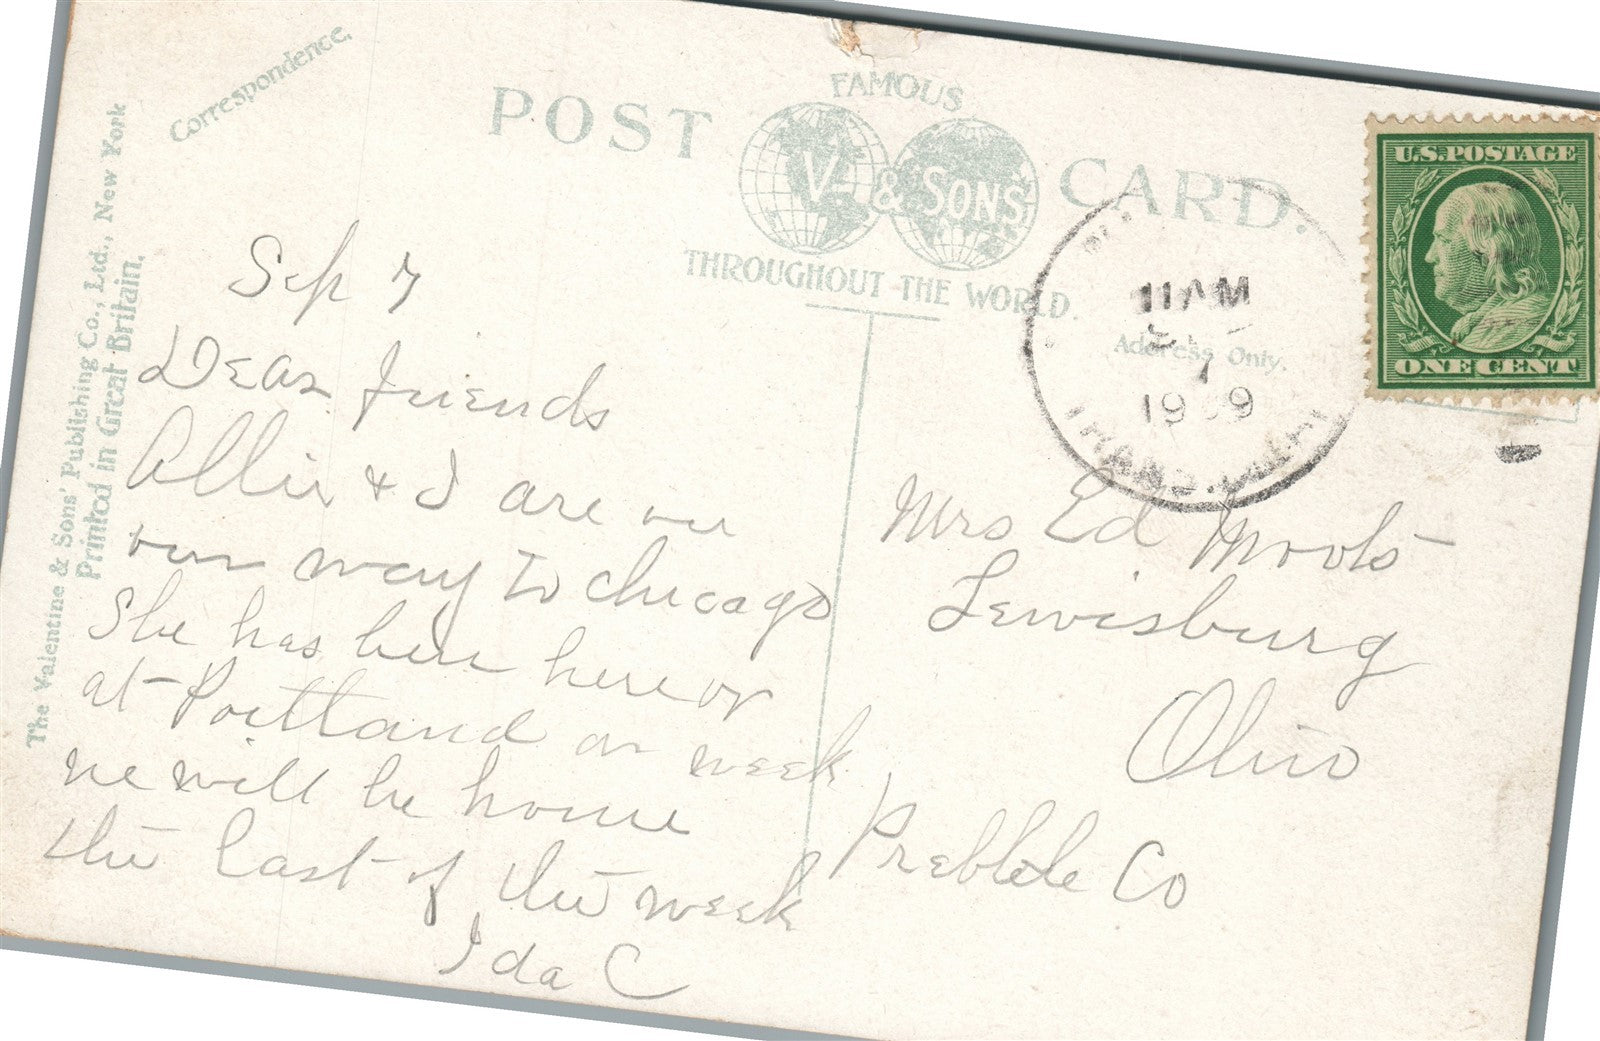 Correspondence.
POST CARD.
FAMOUS
V & SONS'
THROUGHOUT THE WORLD.
Address Only.
The Valentine & Sons' Publishing Co., Ltd., New York
Printed in Great Britain.
U.S.POSTAGE
ONE CENT
11 AM
7
19 9
Sep 7
Dear friends
Allie & I are on
our way to Chicago
She has been here or
at Portland a week
we will be home
the last of the week
Ida C
Mrs Ed Moots
Lewisburg
Ohio
Preble Co